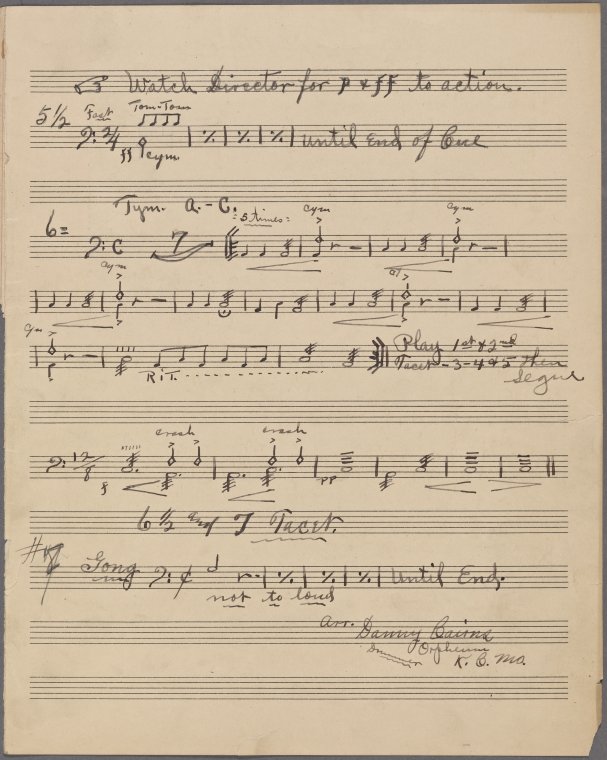 Watch Director for p & ff to action.
5½ Fast Tom-Tom
2/4 ff cym. until End of Cue
Tym. A.-C.
6= C 7 :5 times: cym cym
cym
cym
Play 1st & 2nd
RIT. Tacet - 3 - 4 & 5 then
Segue
crash crash
12/8 f pp
6½ and 7 Tacet.
#7 Gong Until End.
not to loud
Arr. Danny Cairns
Drummer Orpheum
K. C. Mo.